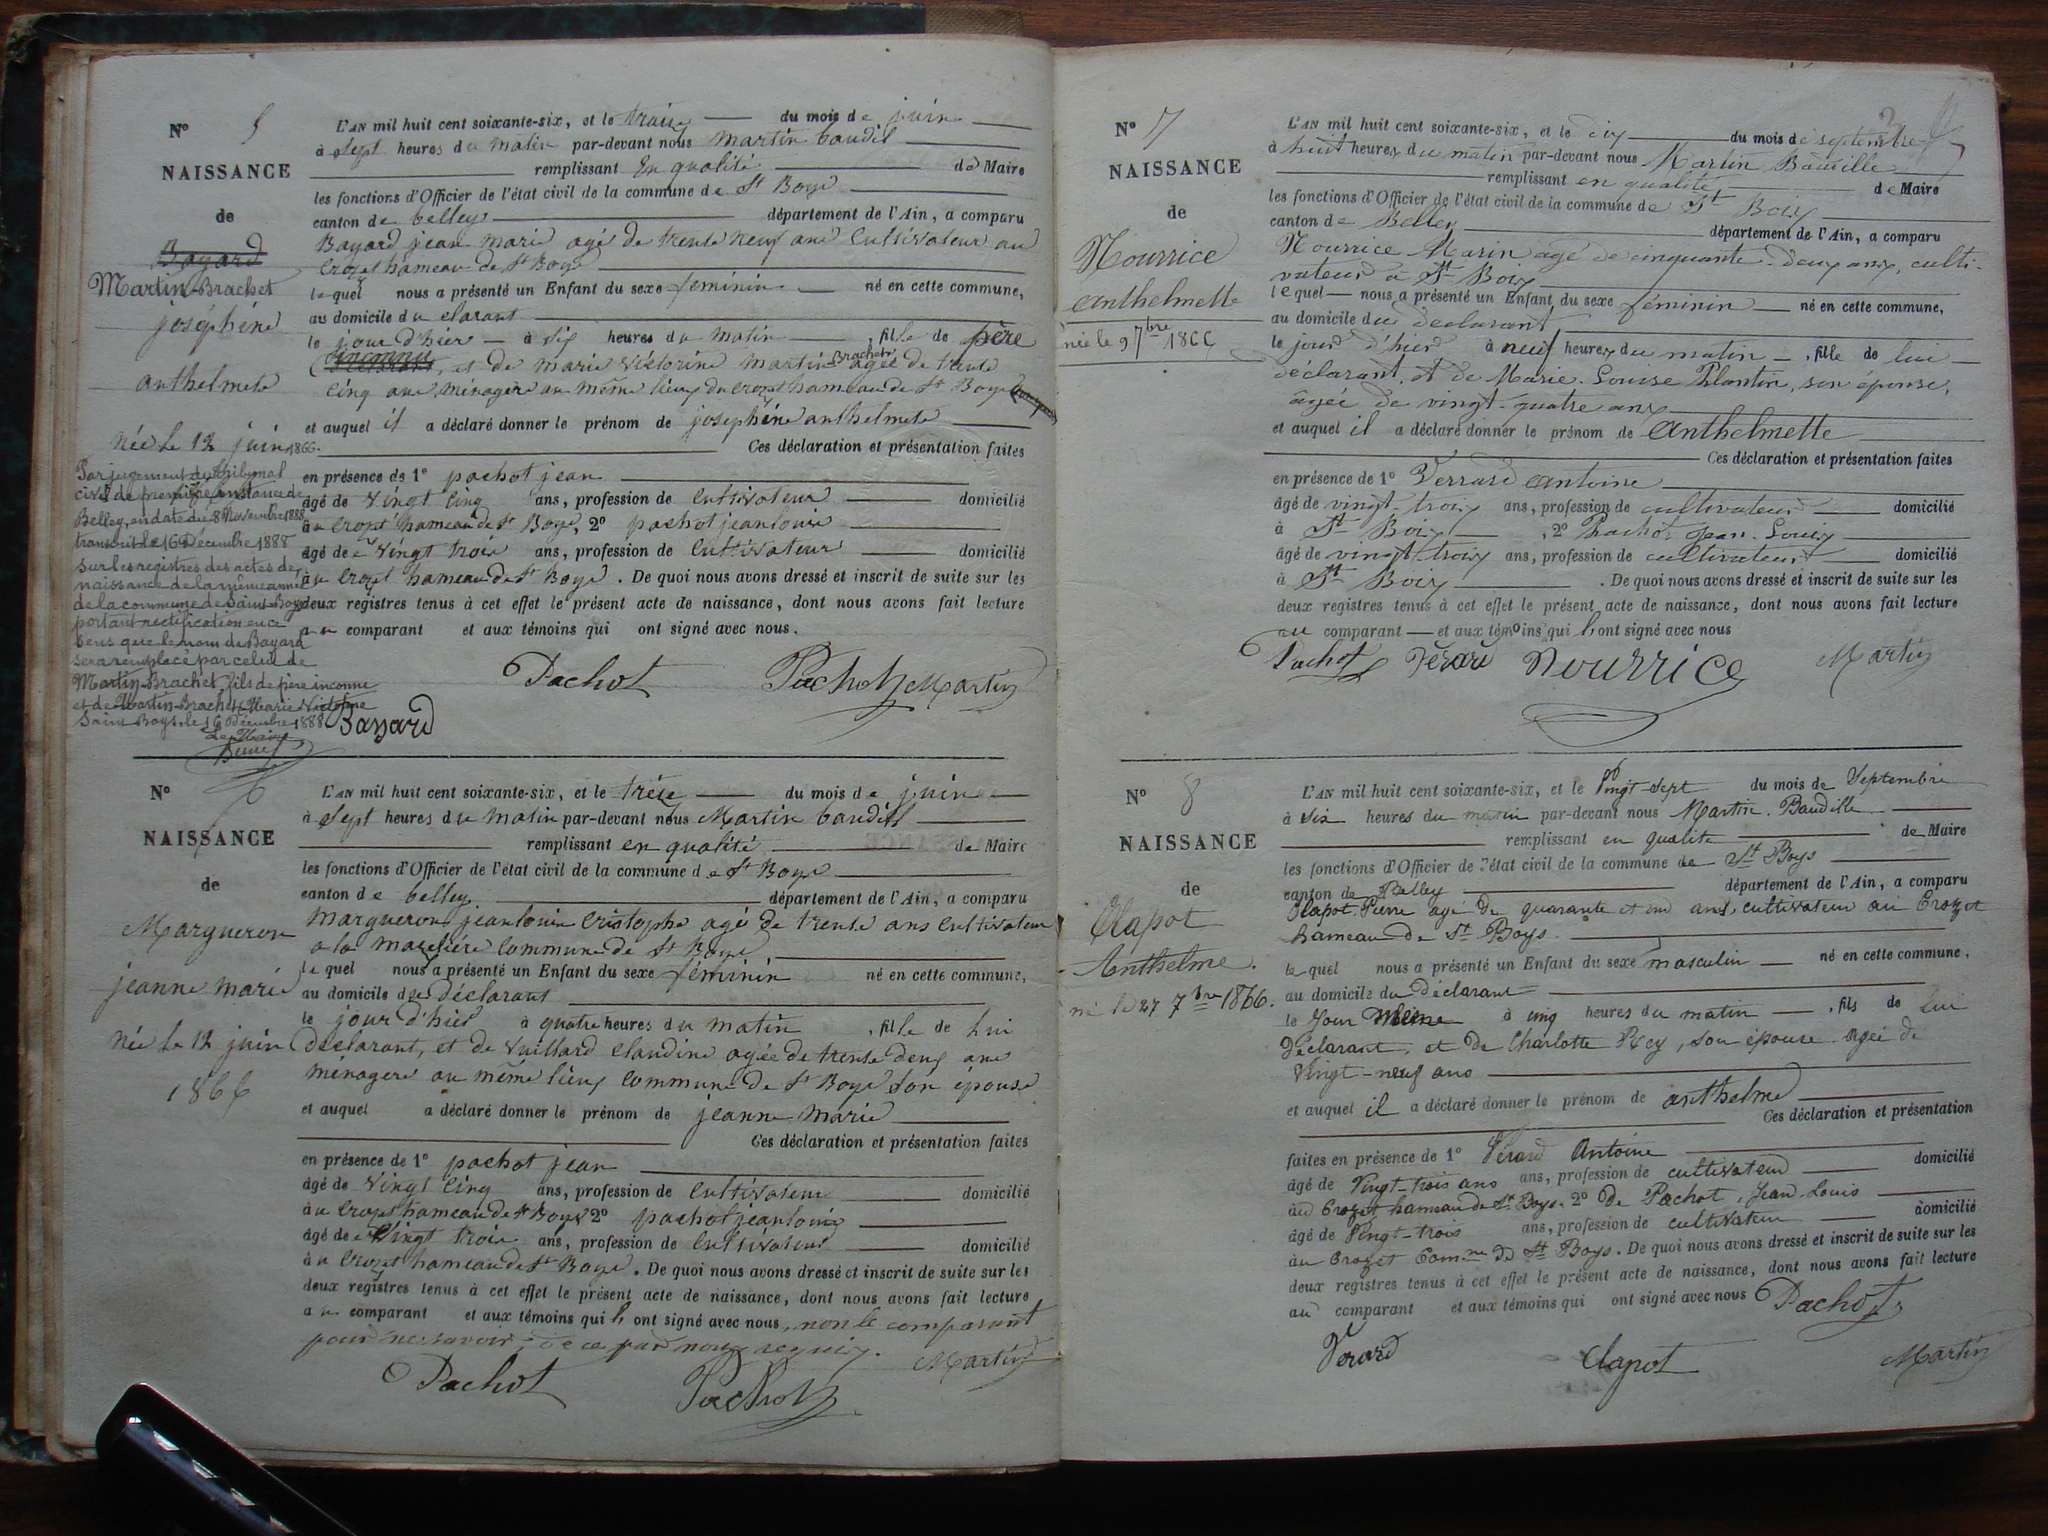 N° 5
NAISSANCE
de
Bayard
Martin-Brachet
joséphine
anthelmete
Née le 12 juin 1866.
Par jugement du tribunal
civil de première instance de
Belley, en date du 8 Novembre 1888
transcrit le 16 Décembre 1888
sur les registres des actes de
naissance de la même année
de la commune de Saint-Boys
portant rectification en ce
sens que le nom de Bayard
sera remplacé par celui de
Martin-Brachet fils de père inconnu
et de Martin-Brachet Marie Victorine
Saint Boys, le 16 Décembre 1888
Le Maire
L'AN mil huit cent soixante-six, et le traize du mois de juin
à sept heures du matin par-devant nous martin baudil
remplissant En qualité de Maire
les fonctions d'Officier de l'état civil de la commune de St Boys
canton de belleys département de l'Ain, a comparu
Bayard jean marie agé de trente neuf ans Cultivateur au
Crozet hameau de St Boys
lequel nous a présenté un Enfant du sexe feminin né en cette commune,
au domicile du clarant
le jour d'hier à six heures du matin, fille de père
inconnu, et de marie victorine martin-Brachet agée de trente
cinq ans ménagère au même lieux du crozet hameau de St Boys
et auquel il a déclaré donner le prénom de joséphine anthelmete
Ces déclaration et présentation faites
en présence de 1° pachot jean
âgé de vingt cinq ans, profession de Cultivateur domicilié
à u crozet hameau de St Boys, 2° pachot jean louis
âgé de vingt trois ans, profession de Cultivateur domicilié
à u Crozet hameau de St Boys. De quoi nous avons dressé et inscrit de suite sur les
deux registres tenus à cet effet le présent acte de naissance, dont nous avons fait lecture
au comparant et aux témoins qui ont signé avec nous.
Pachot Pachot Martin
Bayard
N° 6
NAISSANCE
de
Margueron
jeanne marie
Née le 12 juin
1866
L'AN mil huit cent soixante-six, et le trèze du mois de juin
à sept heures du matin par-devant nous Martin baudil
remplissant en qualité de Maire
les fonctions d'Officier de l'état civil de la commune de St Boys
canton de belley département de l'Ain, a comparu
Margueron jean louis Cristophe agé de trente ans Cultivateur
a la commune de St Boys
lequel nous a présenté un Enfant du sexe féminin né en cette commune,
au domicile du déclarant
le jour d'hier à quatre heures du matin, fille de lui
déclarant, et de Vuillard claudine agée de trente deux ans
ménagère au même lieux commune de St Boys son épouse
et auquel a déclaré donner le prénom de jeanne marie
Ces déclaration et présentation faites
en présence de 1° pachot jean
âgé de vingt cinq ans, profession de Cultivateur domicilié
à u Crozet hameau de St Boys 2° pachot jean louis
âgé de vingt trois ans, profession de Cultivateur domicilié
à u Crozet hameau de St Boys. De quoi nous avons dressé et inscrit de suite sur les
deux registres tenus à cet effet le présent acte de naissance, dont nous avons fait lecture
au comparant et aux témoins qui ont signé avec nous, non le comparant
pour ne savoir, de ce par nous requis.
Pachot Pachot Martin
N° 7
NAISSANCE
de
Nourrice
Anthelmette
née le 9 7bre 1866
L'AN mil huit cent soixante-six, et le dix du mois de septembre
à huit heures du matin par-devant nous Martin Baudille
remplissant en qualité de Maire
les fonctions d'Officier de l'état civil de la commune de St Boix
canton de Belley département de l'Ain, a comparu
Nourrice Marin agé de cinquante-deux ans, culti-
vateur à St Boix
lequel nous a présenté un Enfant du sexe féminin né en cette commune,
au domicile du déclarant
le jour d'hier à neuf heures du matin, fille de lui
déclarant, et de Marie-Louise Plantin, son épouse,
agée de vingt-quatre ans
et auquel il a déclaré donner le prénom de Anthelmette
Ces déclaration et présentation faites
en présence de 1° Verrard Antoine
âgé de vingt-trois ans, profession de cultivateur domicilié
à St Boix, 2° Pachot Jean-Louis
âgé de vingt-trois ans, profession de cultivateur domicilié
à St Boix. De quoi nous avons dressé et inscrit de suite sur les
deux registres tenus à cet effet le présent acte de naissance, dont nous avons fait lecture
au comparant et aux témoins qui ont signé avec nous
Pachot Vérard Nourrice Martin
N° 8
NAISSANCE
de
Clapot
Anthelme.
né le 27 7bre 1866.
L'AN mil huit cent soixante-six, et le Vingt-sept du mois de Septembre
à six heures du matin par-devant nous Martin Baudille
remplissant en qualite de Maire
les fonctions d'Officier de l'état civil de la commune de St Boys
canton de Belley département de l'Ain, a comparu
Clapot Pierre agé de quarante et un ans, cultivateur au Crozet
hameau de St Boys.
lequel nous a présenté un Enfant du sexe masculin né en cette commune,
au domicile du déclarant
le jour Même à cinq heures du matin, fils de lui
déclarant, et de Charlotte Rey, son épouse agée de
Vingt-neuf ans
et auquel il a déclaré donner le prénom de anthelme
Ces déclaration et présentation
faites en présence de 1° Vérard Antoine
âgé de Vingt-trois ans ans, profession de cultivateur domicilié
au Crozet hameau de St Boys. 2° de Pachot, Jean-Louis
âgé de Vingt-trois ans, profession de cultivateur domicilié
au Crozet Comne de St Boys. De quoi nous avons dressé et inscrit de suite sur les
deux registres tenus à cet effet le présent acte de naissance, dont nous avons fait lecture
au comparant et aux témoins qui ont signé avec nous Pachot
Verard Clapot Martin